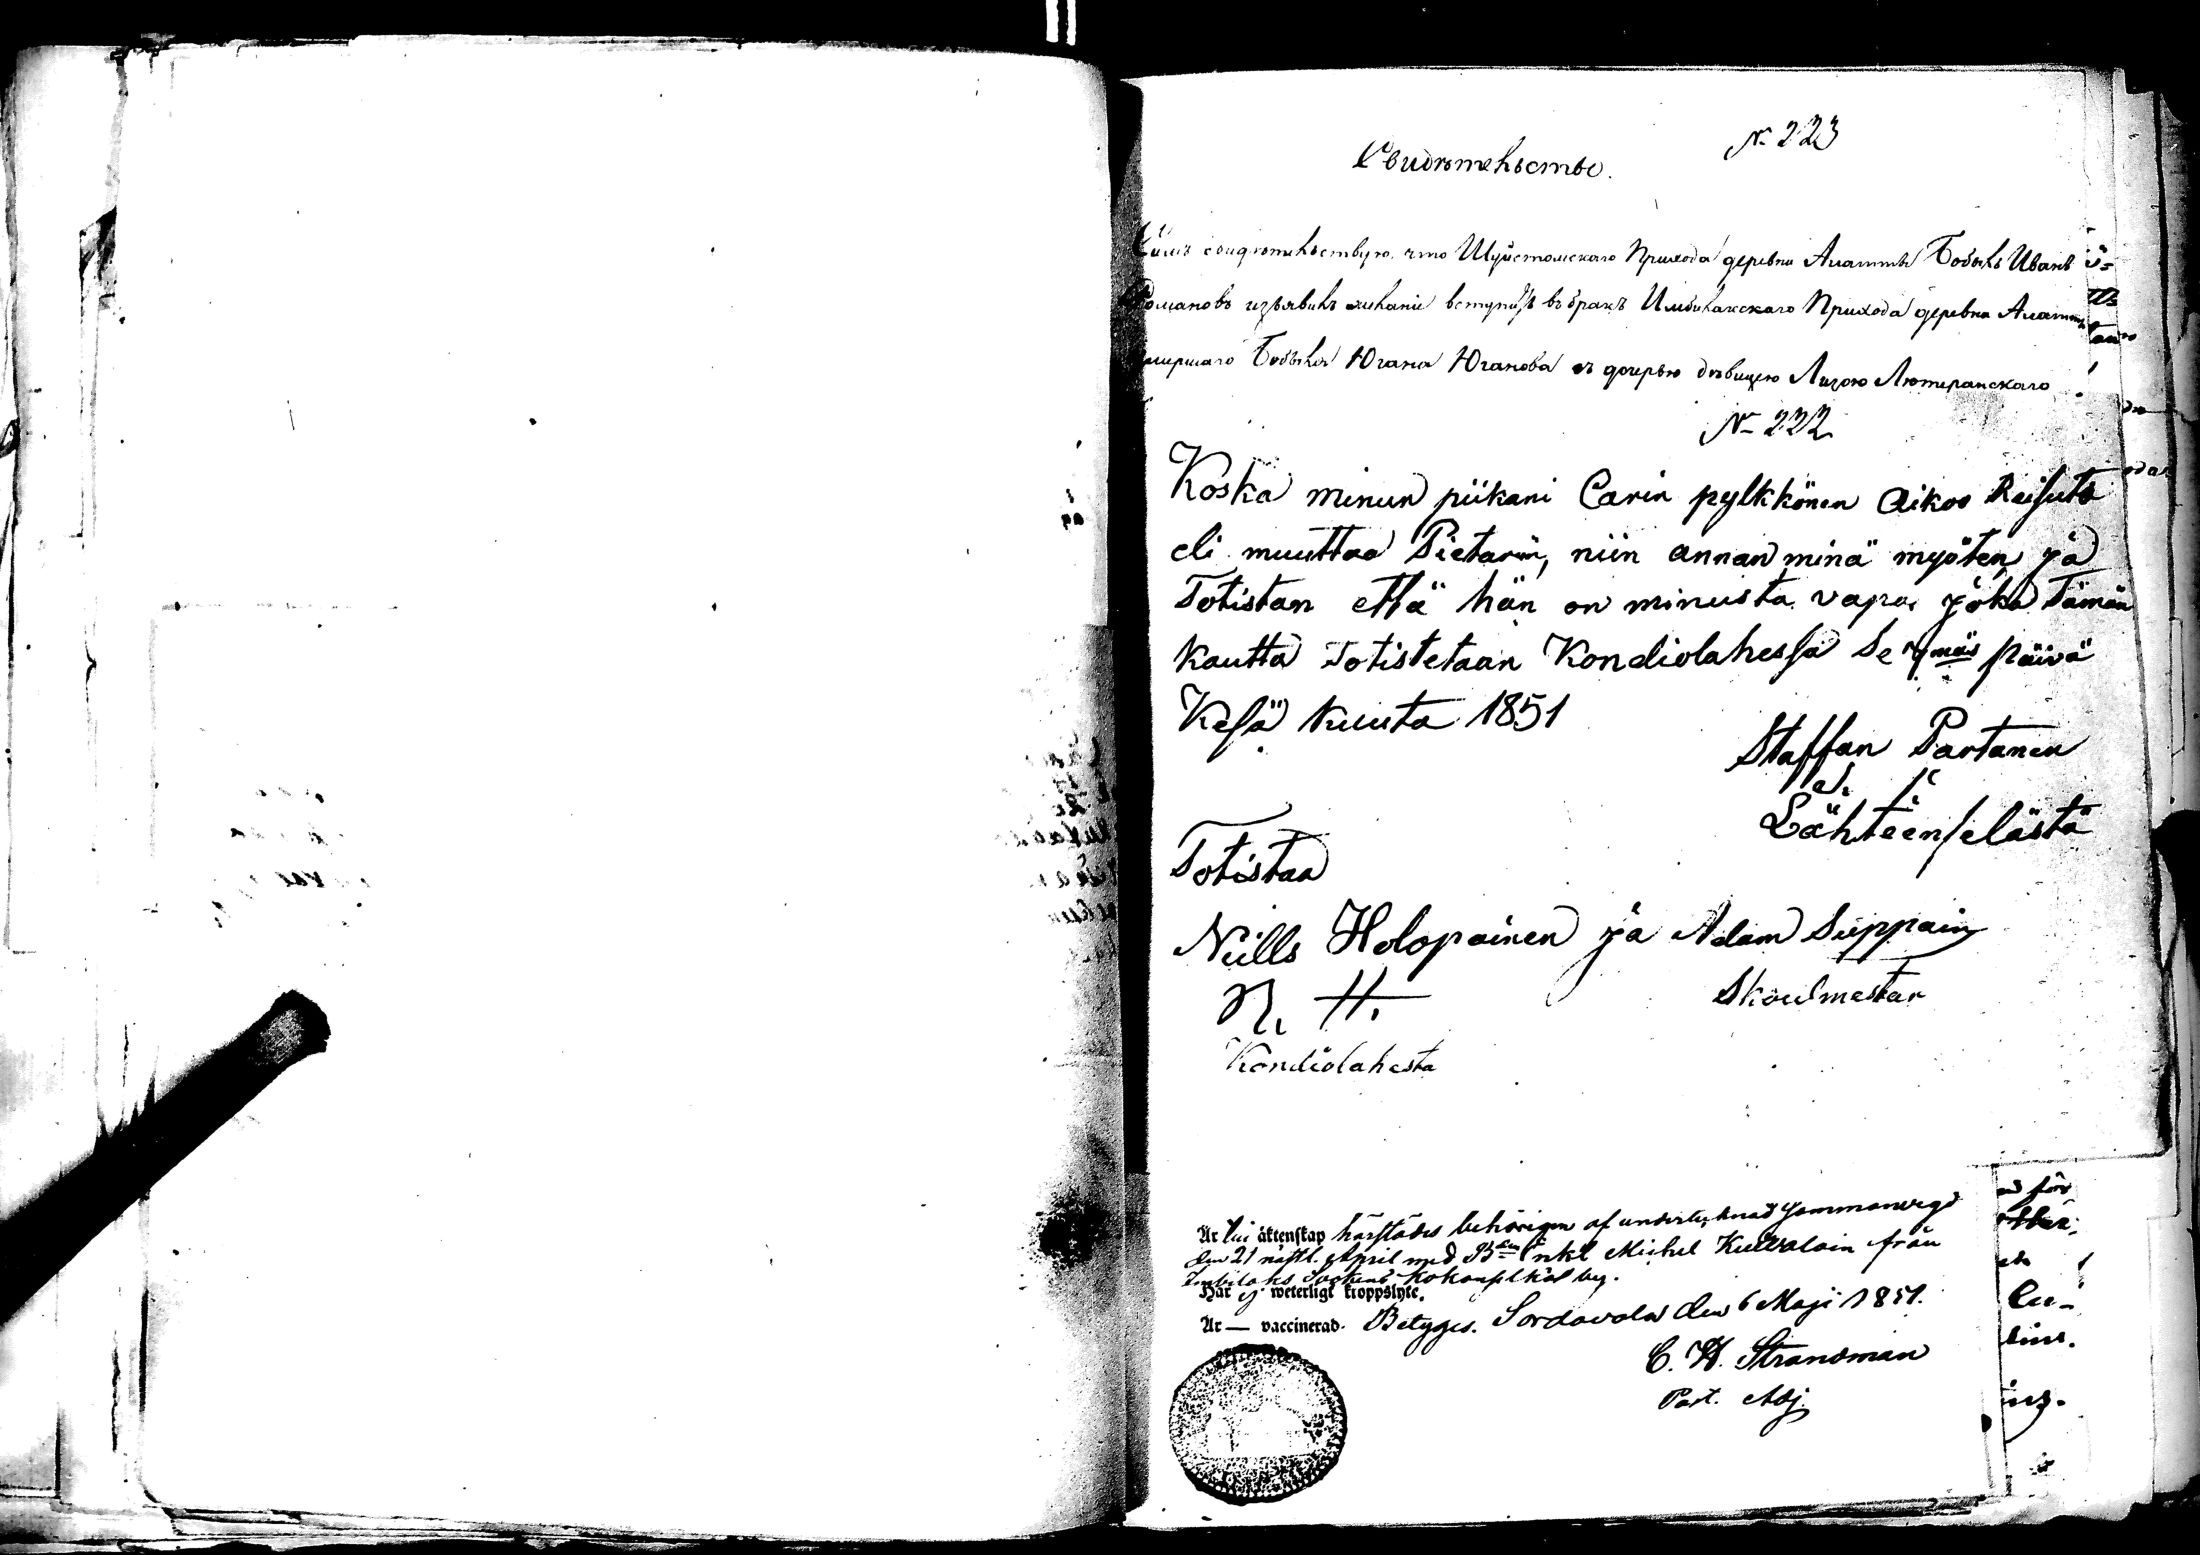 № 223
Свидѣтельство.
Симъ свидѣтельствую что Шуйстомскаго Прихода деревни Алатту Бобыль Иванъ
Романовъ изъявилъ желаніе вступить въ бракъ Имбилакскаго Прихода деревни Алатту
умершаго Бобыля Югана Юганова съ дочерью дѣвицею Лизою Лютеранскаго
№ 222
Koska minun piikani Carin pylkkönen Aikoo Reisuta
eli muuttaa Pietariin, niin annan minä myöten, ja
Totistan että hän on minusta vapa, joka Tämän
kautta Totistetaan Kondiolahessa Se 7 mäs päivä
Kesä kuuta 1851
Staffan Partanen
S. P.
Lähteenselästä
Totistaa
Niills Holopainen ja Adam Sippain
N. H. Skoulmestar
Kondiolahesta
Är äktenskap härstädes behörigen af undertecknad sammanvigd
den 21 nästl. April med Enkl Michel Kuivalain från
Imbilaks Sockens by.
Har ej veterligt kroppslyte.
Är — vaccinerad. Betyges. Sordavala den 6 Maji 1851.
C. H. Strandman
Past. Adj.